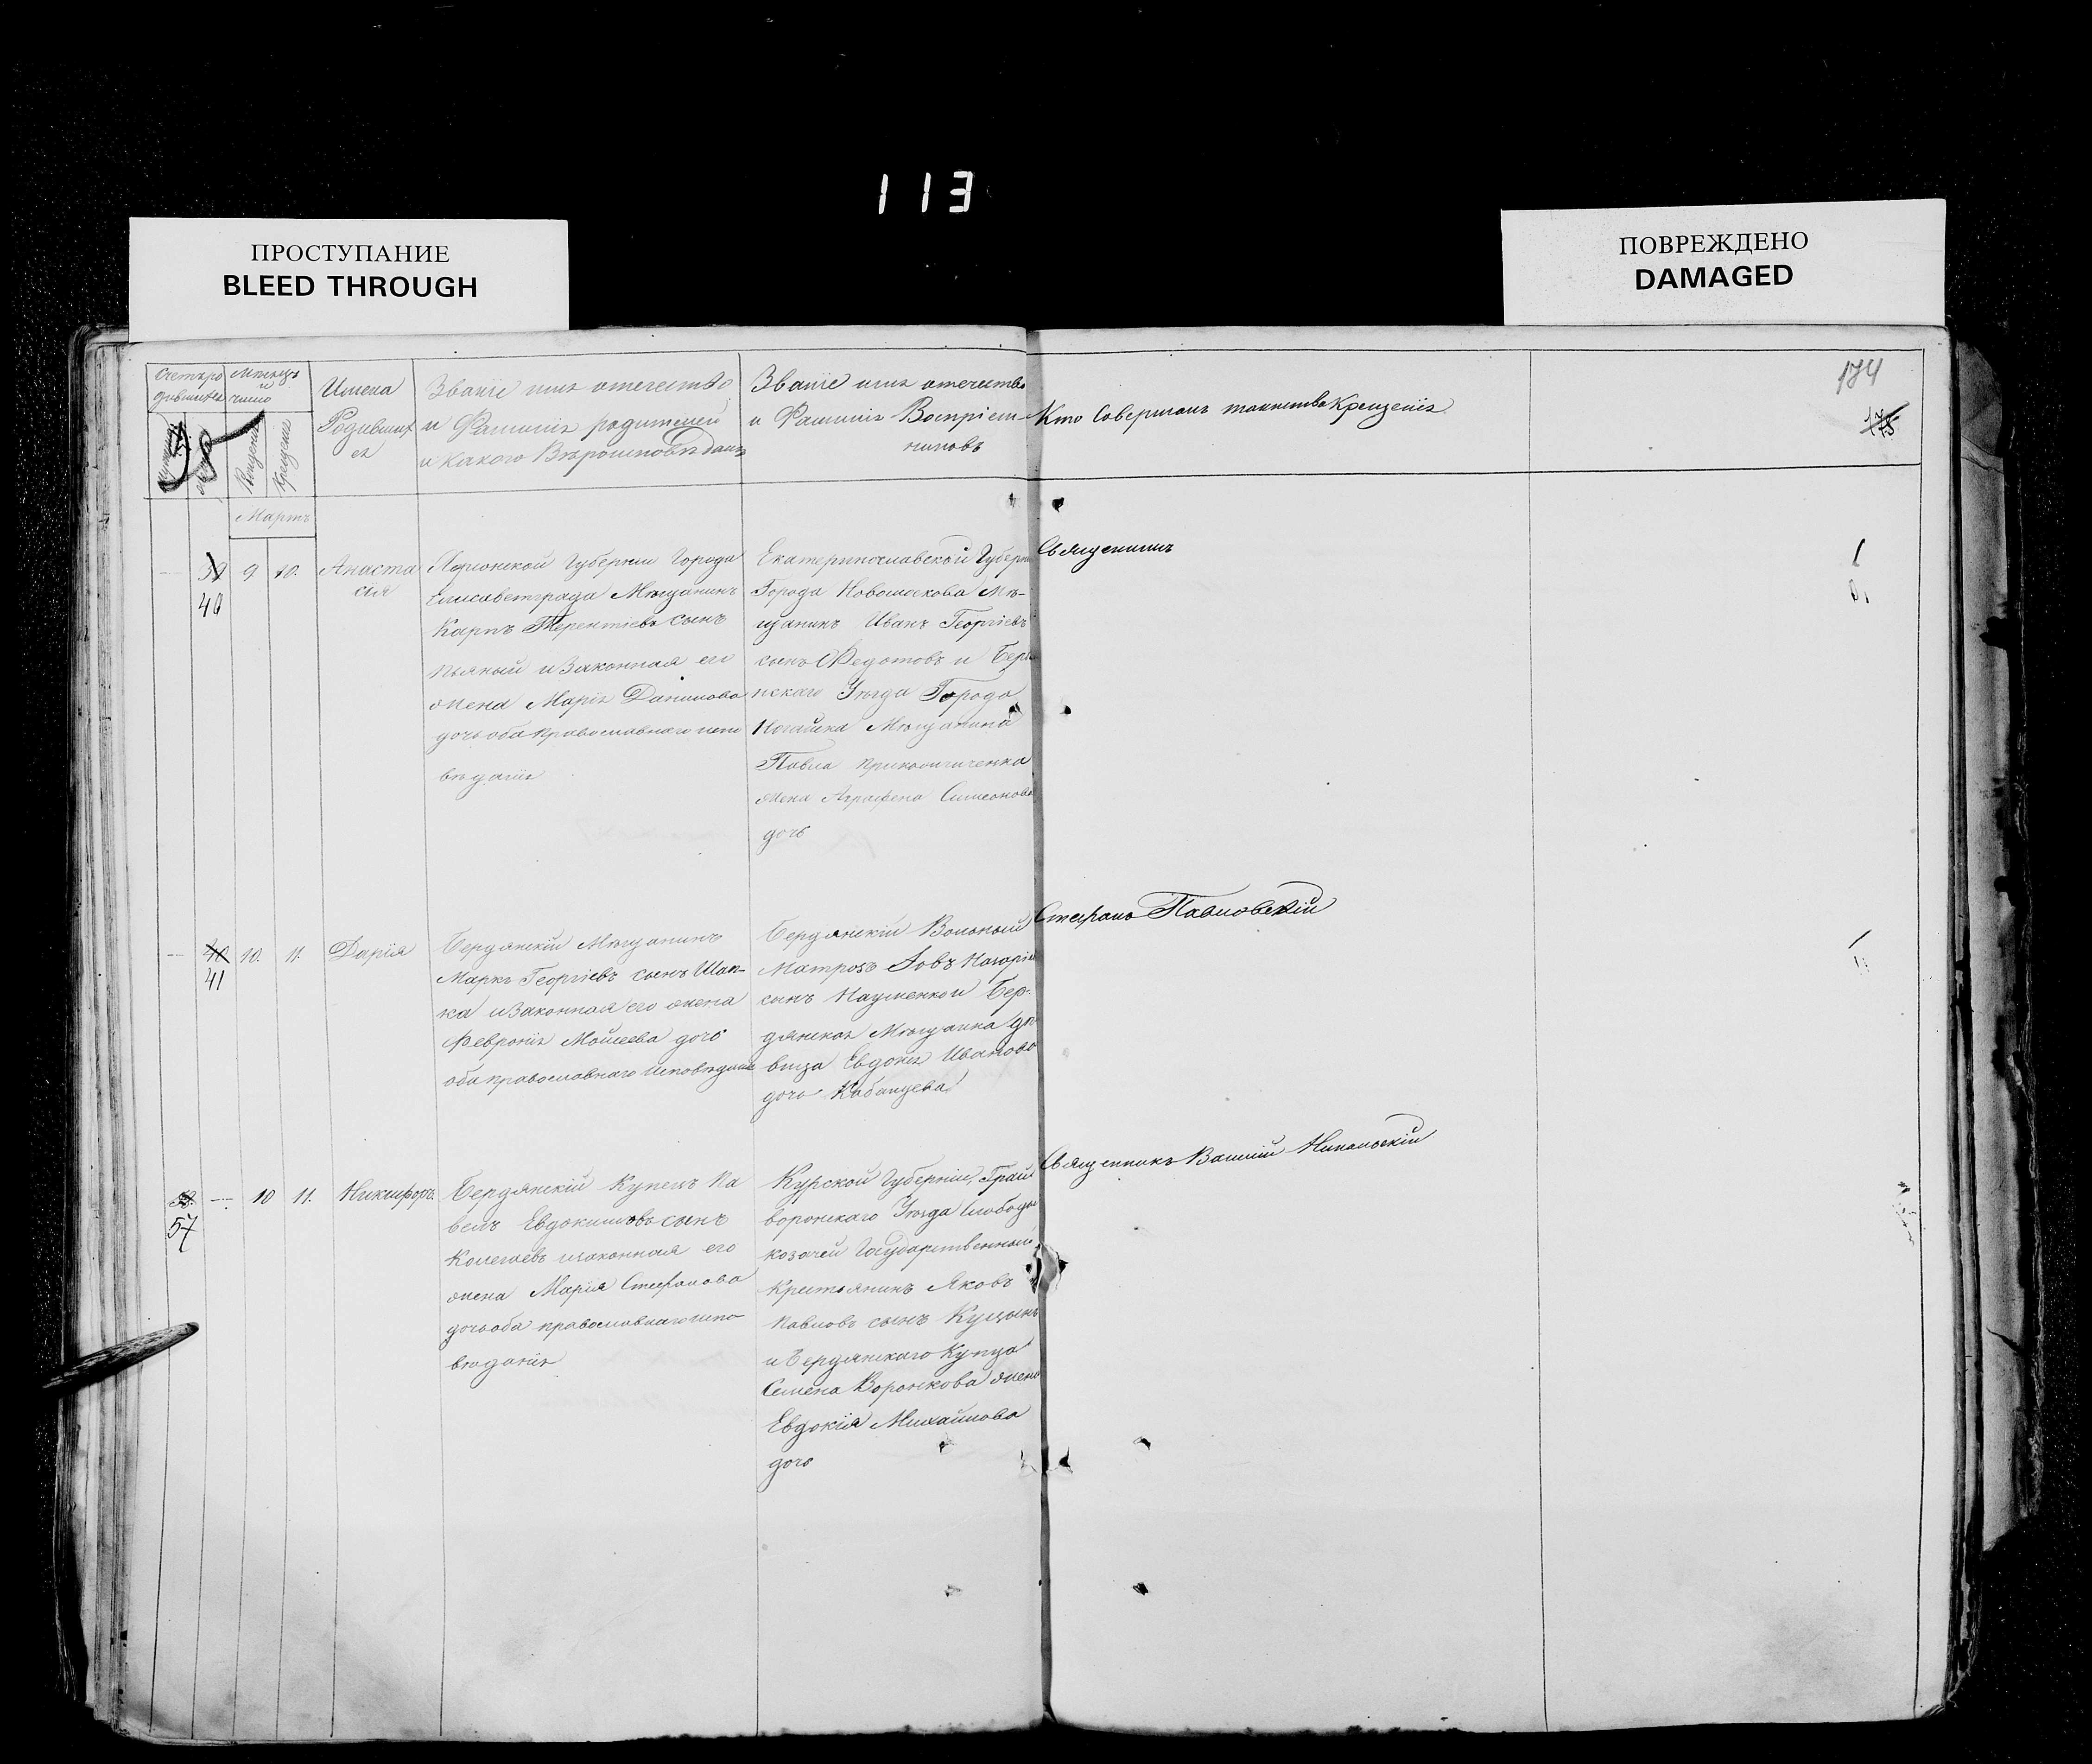 113
ПРОСТУПАНИЕ
BLEED THROUGH
ПОВРЕЖДЕНО
DAMAGED
174
Счетъ ро
дившихся
Мѣсяцъ
и
число
Имена
Родивших
ся
Званіе имя отечество
и Фамилія родителей
и какого Вѣроисповѣданія
Званіе имя отечество
и Фамилія Воспріем-
никовъ
Кто Совершалъ таинство Крещенія
Рожденія
Крещенія
Мартъ
39
40
9
10.
Анаста
сія
Херсонской Губерніи Города
Елисаветграда Мѣщанинъ
Карпъ Терентіевъ сынъ
Пьяный и Законная его
жена Марія Данилова
дочь оба православнаго испо
вѣданія
Екатеринославской Губерніи
Города Новомосковска Мѣ-
щанинъ Иванъ Георгіевъ
сынъ Федотовъ и Бердя
нскаго Уѣзда Города
Ногайска Мѣщанина
Павла
жена Агрофена Симеонова
дочь
Священникъ
1
40
41
10.
11.
Дарія
Бердянскій Мѣщанинъ
Маркъ Георгіевъ сынъ Шап-
ка и Законная его жена
Февронія Моисеева дочь
оба православнаго Исповѣданія
Бердянскій Вольный
Матрозъ Іовъ
сынъ Науменко и Бер-
дянская Мѣщанка дѣ
вица Евдокія Иванова
дочь Кабанцева
Стефанъ Павловскій
1
57
10
11.
Никифоръ
Бердянскій Купецъ Па
велъ Евдокимовъ сынъ
Колегаевъ изаконная его
жена Марія Стефанова
дочь оба православнаго испо
вѣданія
Курской Губерніи, Грай
воронскаго Уѣзда Слободы
козачей Государственный
Крестьянинъ Яковъ
Павловъ сынъ Куцынъ
и Бердянскаго Купца
Семена Воронкова жена
Евдокія Михайлова
дочь
Священникъ Василій Никольскій